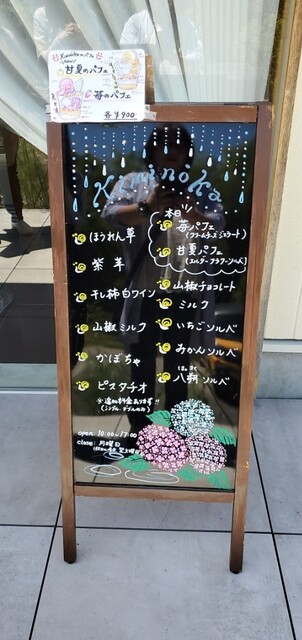 Kiminokaのパフェ
甘夏のパフェ
苺のパフェ
各¥900
Kiminoka
ほうれん草
紫芋
干し柿白ワイン
山椒ミルク
かぼちゃ
ピスタチオ
※追加料金あります!!
(シングル、ダブルのみ)
open 10:00~17:00
close 月曜日
本日
苺パフェ
(クリームチーズジェラート)
甘夏パフェ
(エルダーフラワーソルベ)
山椒チョコレート
ミルク
いちごソルベ
みかんソルベ
はっさく
八朔ソルベ